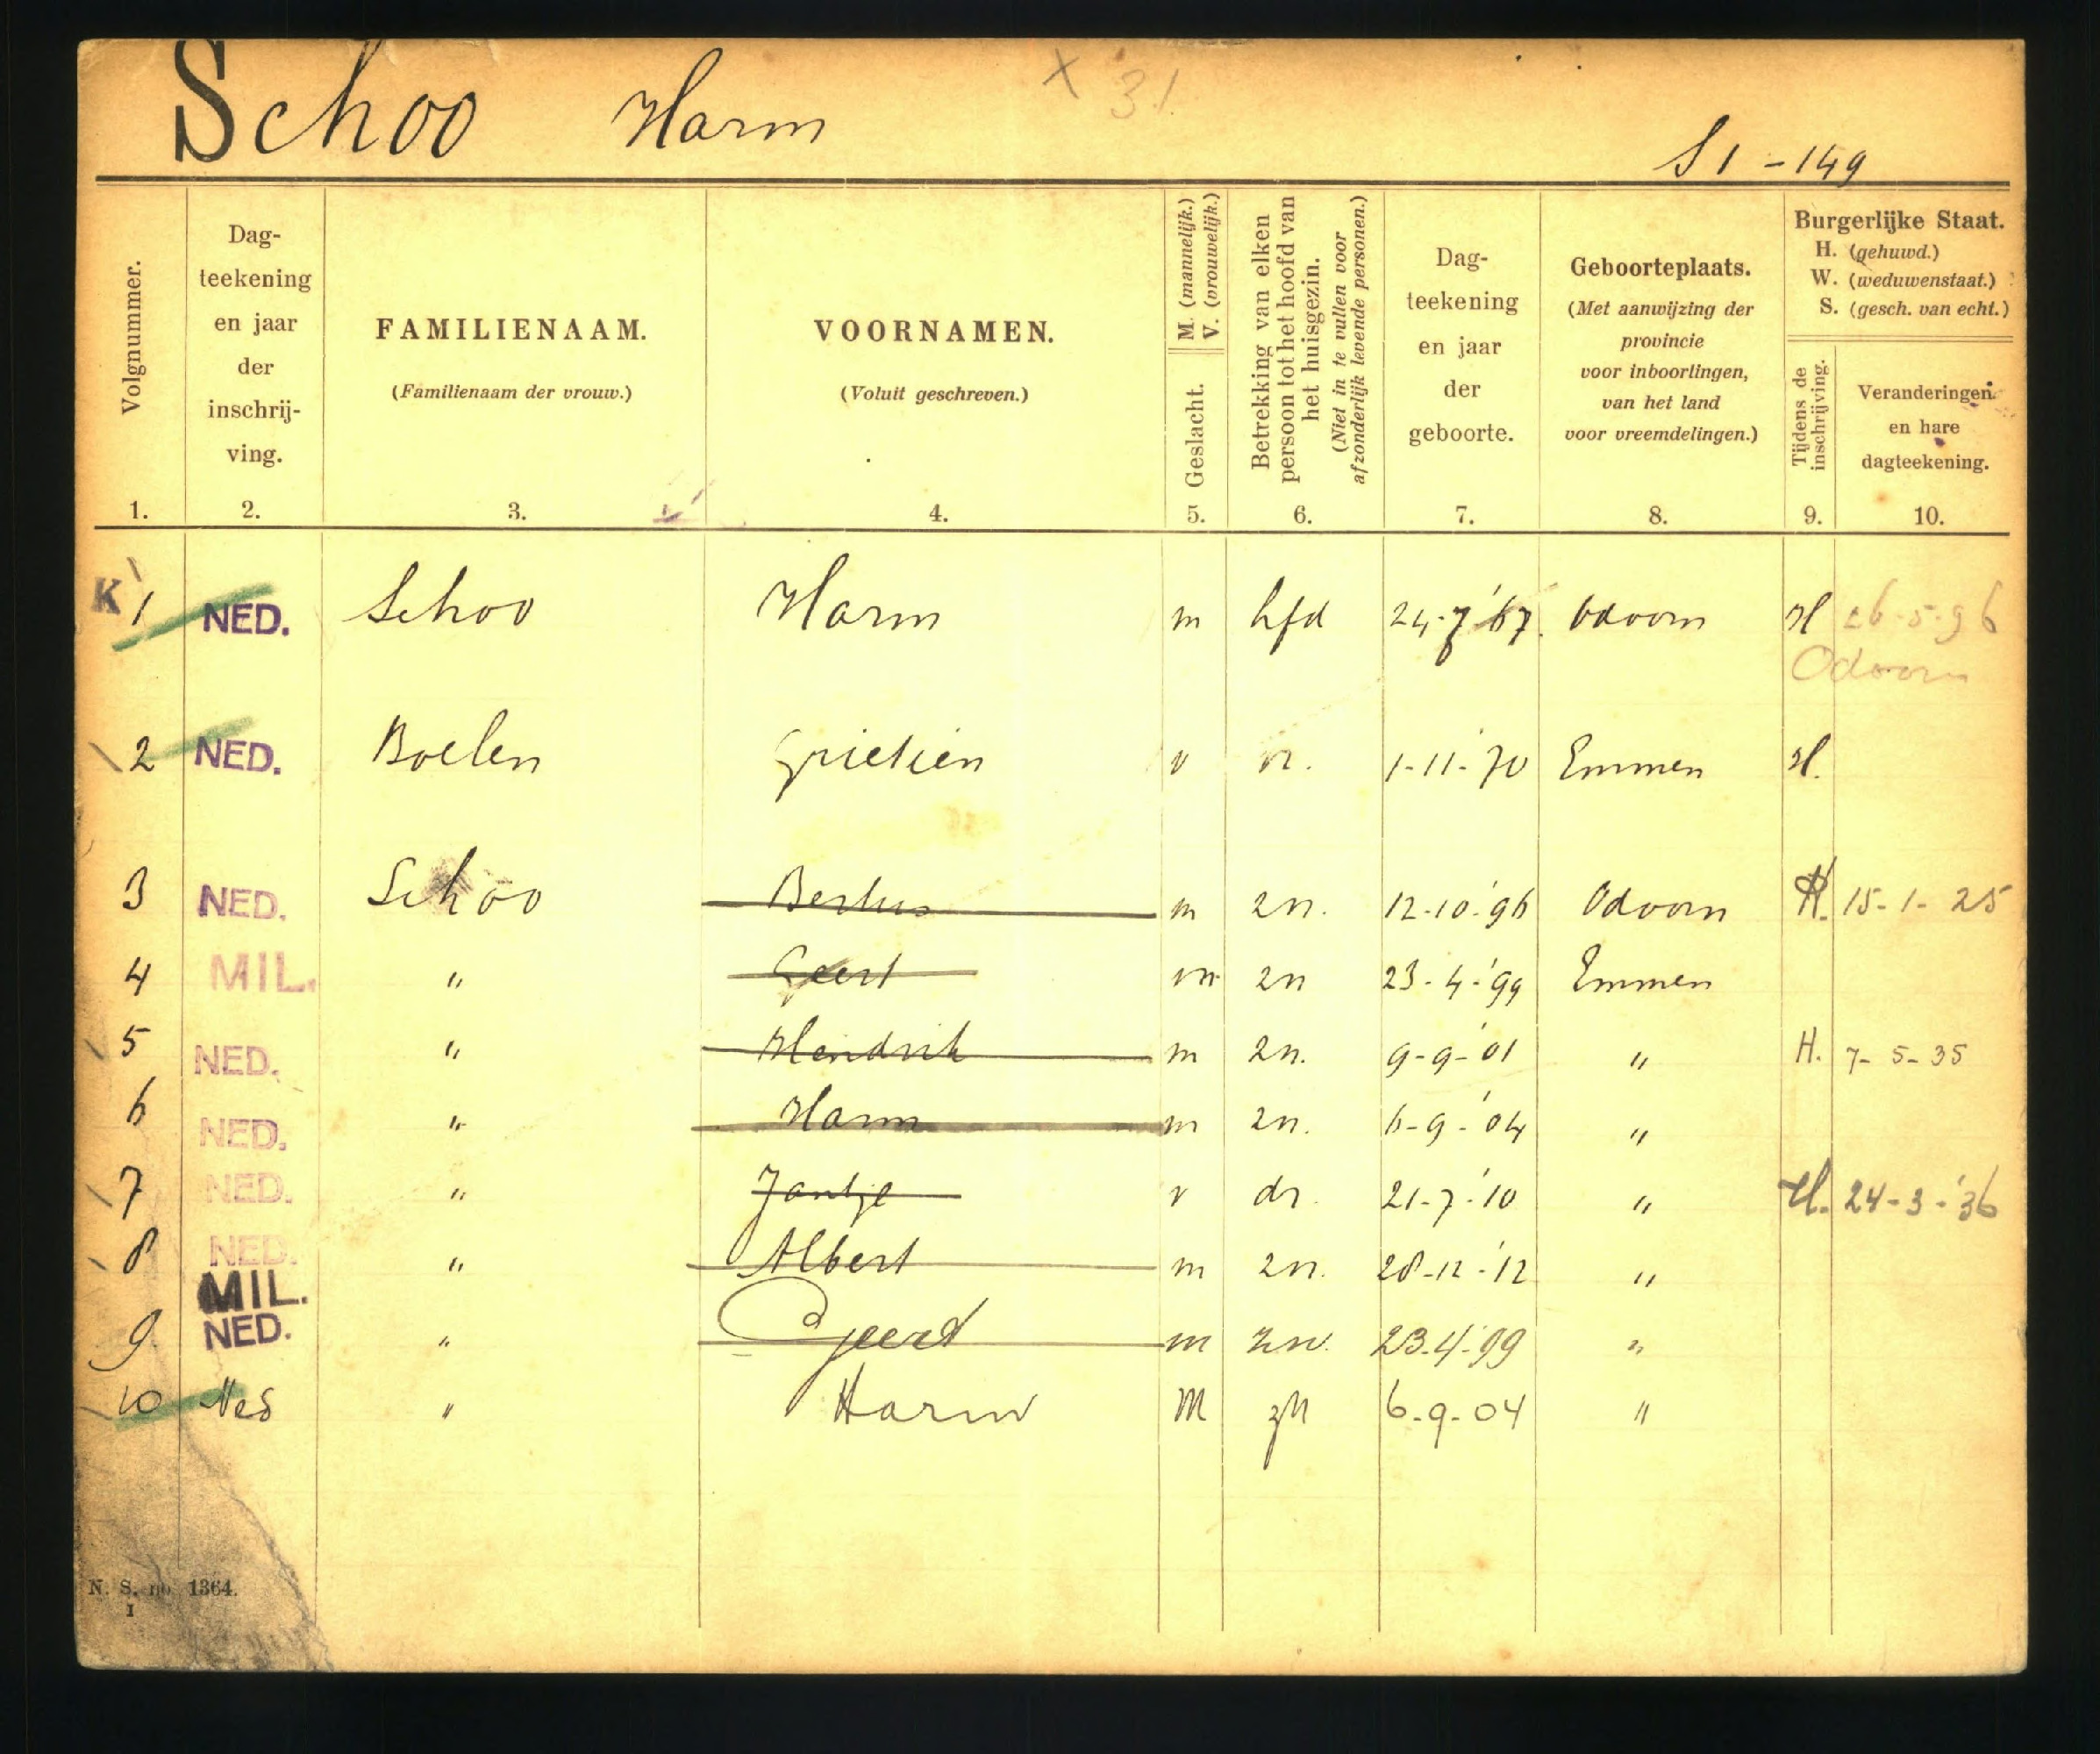 Schoo Harm × 31
S1 - 149
Volgnummer. 1.
Dag-
teekening
en jaar
der
inschrij-
ving.
2.
FAMILIENAAM.
(Familienaam der vrouw.)
3.
VOORNAMEN.
(Voluit geschreven.)
4.
M. (mannelijk.)
V. (vrouwelijk.)
Geslacht.
5.
Betrekking van elken
persoon tot het hoofd van
het huisgezin.
(Niet in te vullen voor
afzonderlijk levende personen.)
6.
Dag-
teekening
en jaar
der
geboorte.
7.
Geboorteplaats.
(Met aanwijzing der
provincie
voor inboorlingen,
van het land
voor vreemdelingen.)
8.
Burgerlijke Staat.
H. (gehuwd.)
W. (weduwenstaat.)
S. (gesch. van echt.)
Tijdens de
inschrijving.
9.
Veranderingen
en hare
dagteekening.
10.
K 1 NED. Schoo Harm m hfd 24-7-'67. Odoorn H 26-5-96
Odoorn
2 NED. Boelen Grietien v vr. 1-11-'70 Emmen H.
3 NED. Schoo Bertus m zn. 12-10-'96 Odoorn H. 15-1-25
4 MIL. " Geert m zn 23-4-'99 Emmen
5 NED. " Hendrik m zn. 9-9-'01 " H. 7-5-35
6 NED. " Harm m zn. 6-9-'04 "
7 NED. " Jantje v dr. 21-7-'10 " H. 24-3-'36
8 NED. " Albert m zn. 28-12-'12 "
MIL.
9 NED. " Geert m zn. 23-4-'99 "
10 Ned " Harm M zn 6-9-04 "
N. S. no 1364.
I